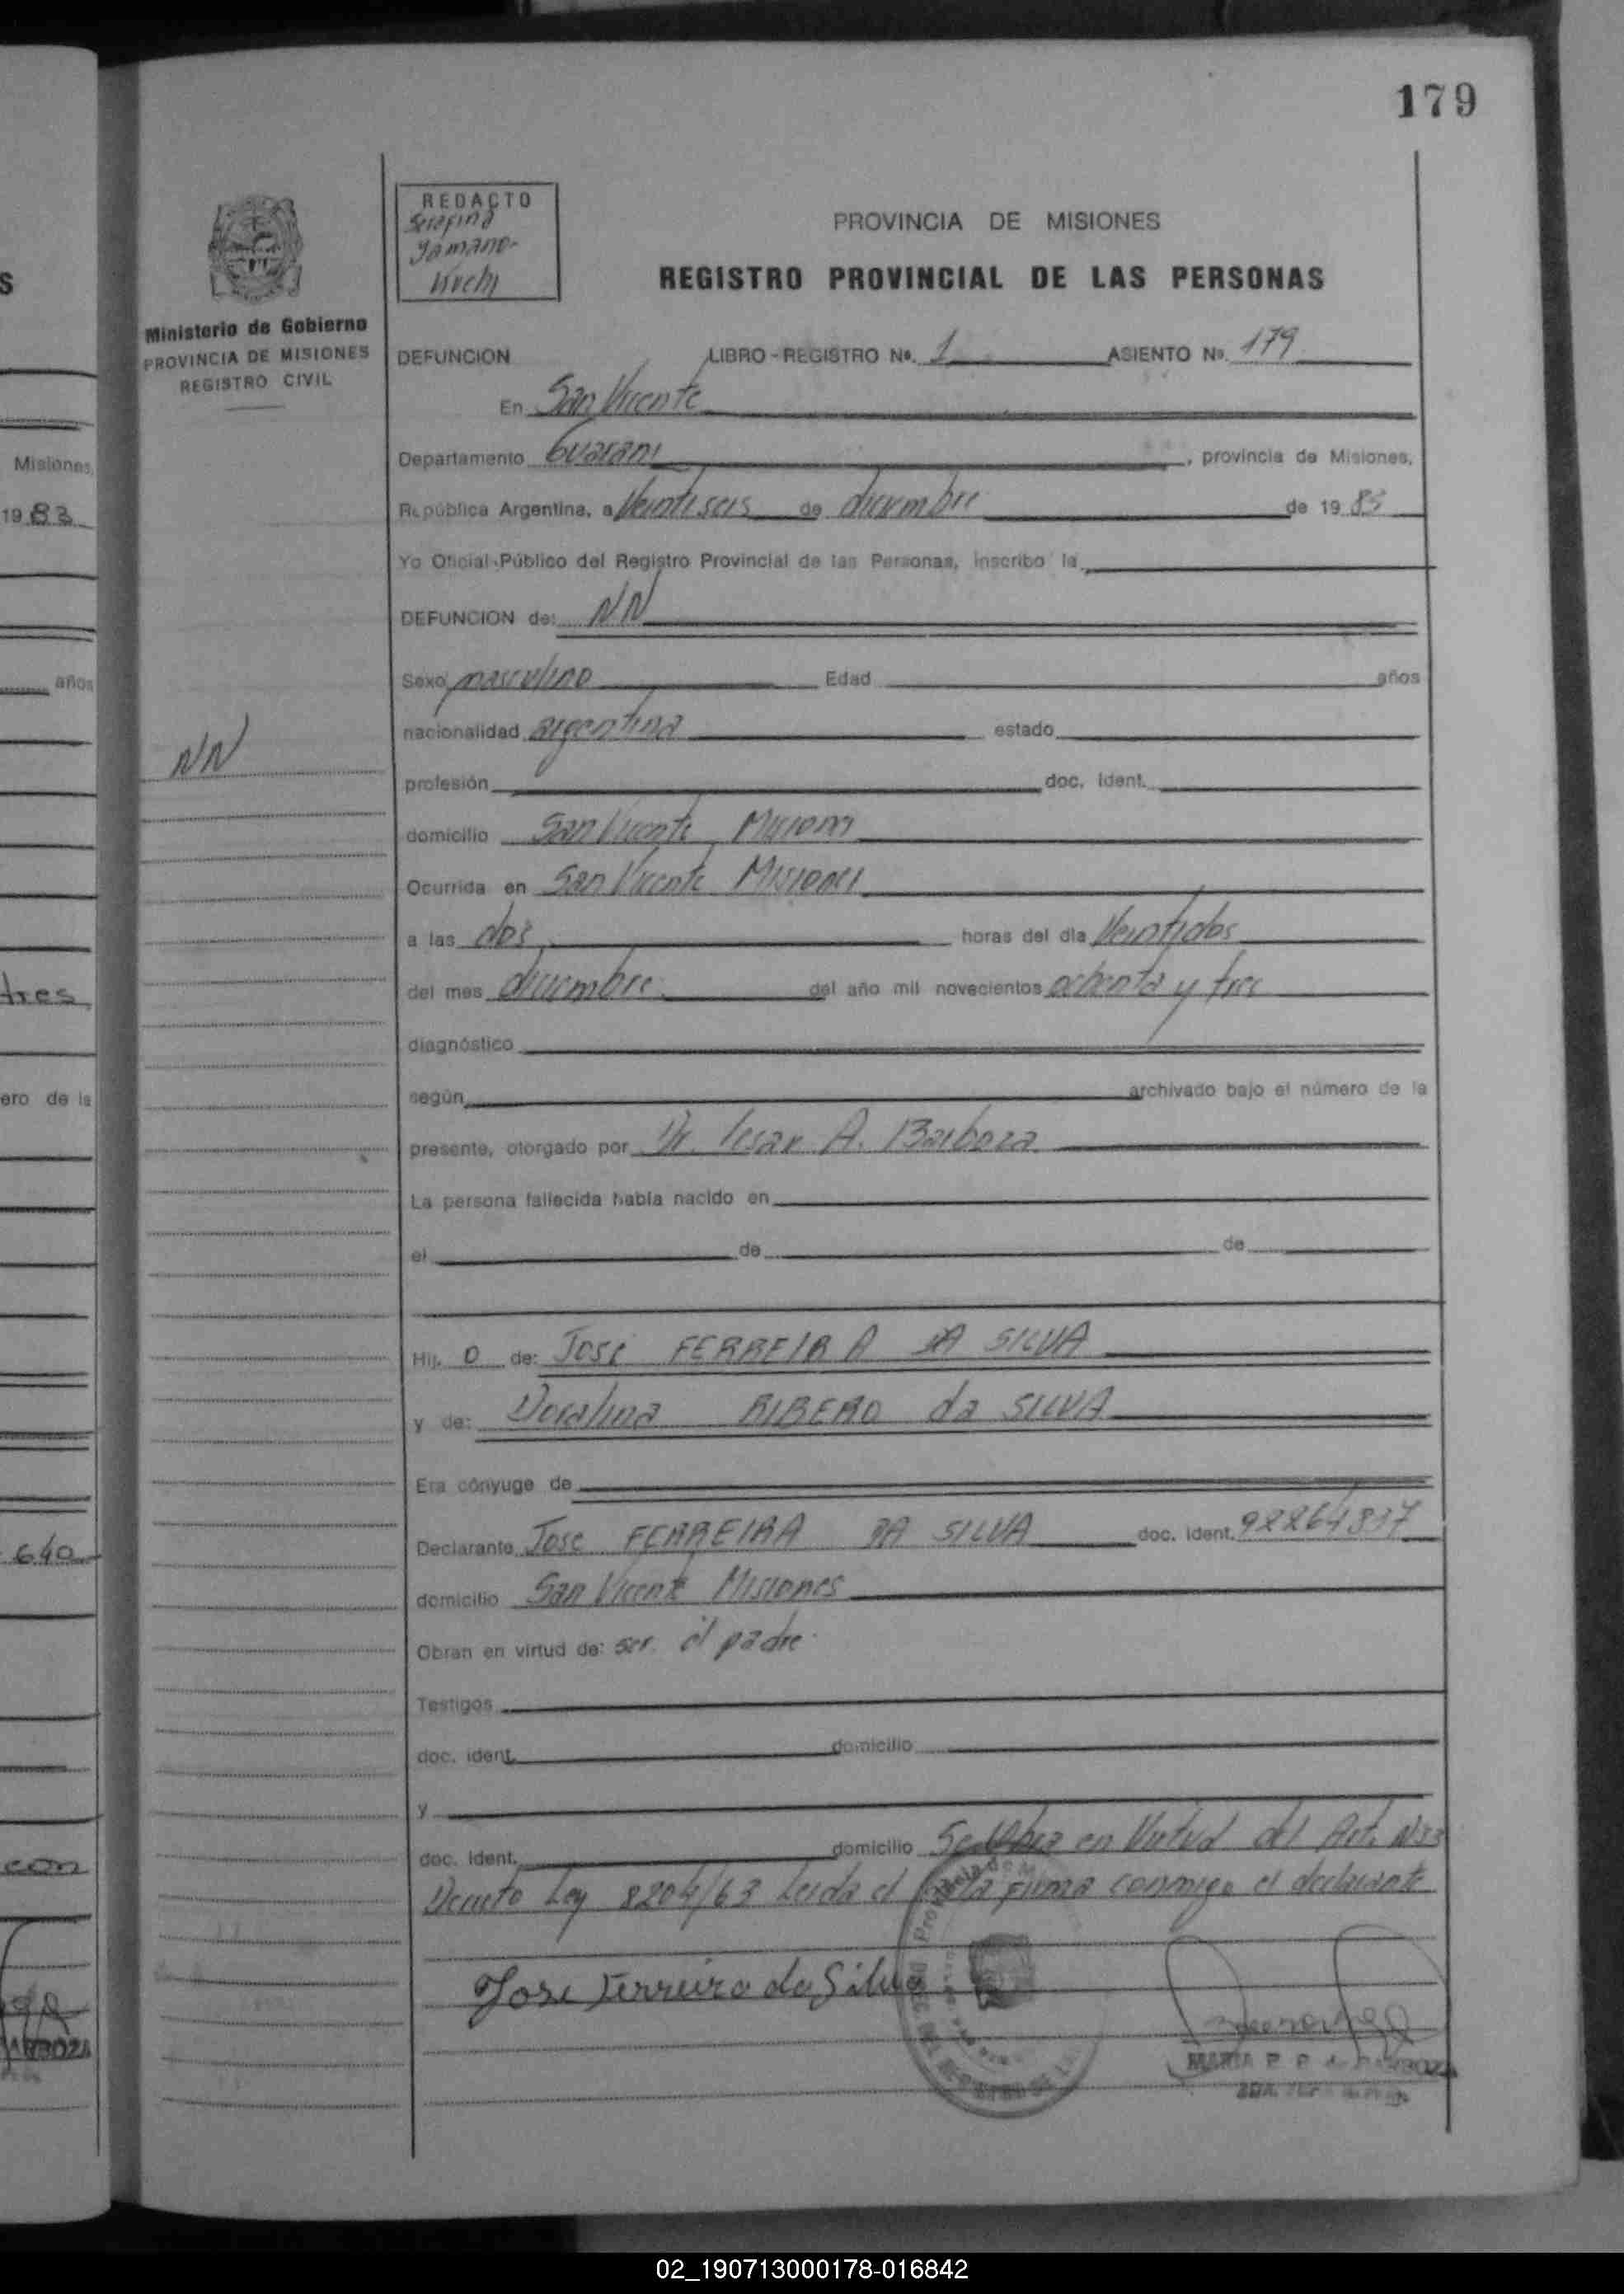 179
REDACTO
Serafina
Yamano-
Kuchi
PROVINCIA DE MISIONES
REGISTRO PROVINCIAL DE LAS PERSONAS
S
Ministerio de Gobierno
PROVINCIA DE MISIONES
REGISTRO CIVIL
DEFUNCION LIBRO-REGISTRO No. 1 ASIENTO No. 179
En San Vicente
Misiones,
Departamento Guarani, provincia de Misiones,
1983
República Argentina, a Veintiseis de diciembre de 1983
Yo Oficial Público del Registro Provincial de las Personas, inscribo la
DEFUNCION de: NN
años
Sexo masculino Edad años
nacionalidad argentina estado
NN
profesión doc. Ident.
domicilio San Vicente Misiones
Ocurrida en San Vicente Misiones
a las dos horas del día Veintidos
tres
del mes diciembre del año mil novecientos ochenta y tres
diagnóstico
ero de la
según archivado bajo el número de la
presente, otorgado por Dr. Cesar A. Barboza
La persona fallecida había nacido en
el de de
Hij o de: José FERREIRA DA SILVA
y de: Doralina RIBERO da SILVA
Era cónyuge de
Declarante Jose FERREIRA DA SILVA doc. ident. 92264837
640
domicilio San Vicente Misiones
Obran en virtud de: ser el padre.
Testigos
doc. ident. domicilio
y
doc. ident. domicilio Se en Virtud del Art.
con
Decreto Ley 8204/63 Leida el Acta firma conmigo el declarante
Jose Ferreira da Silva
MARIA
02_190713000178-016842